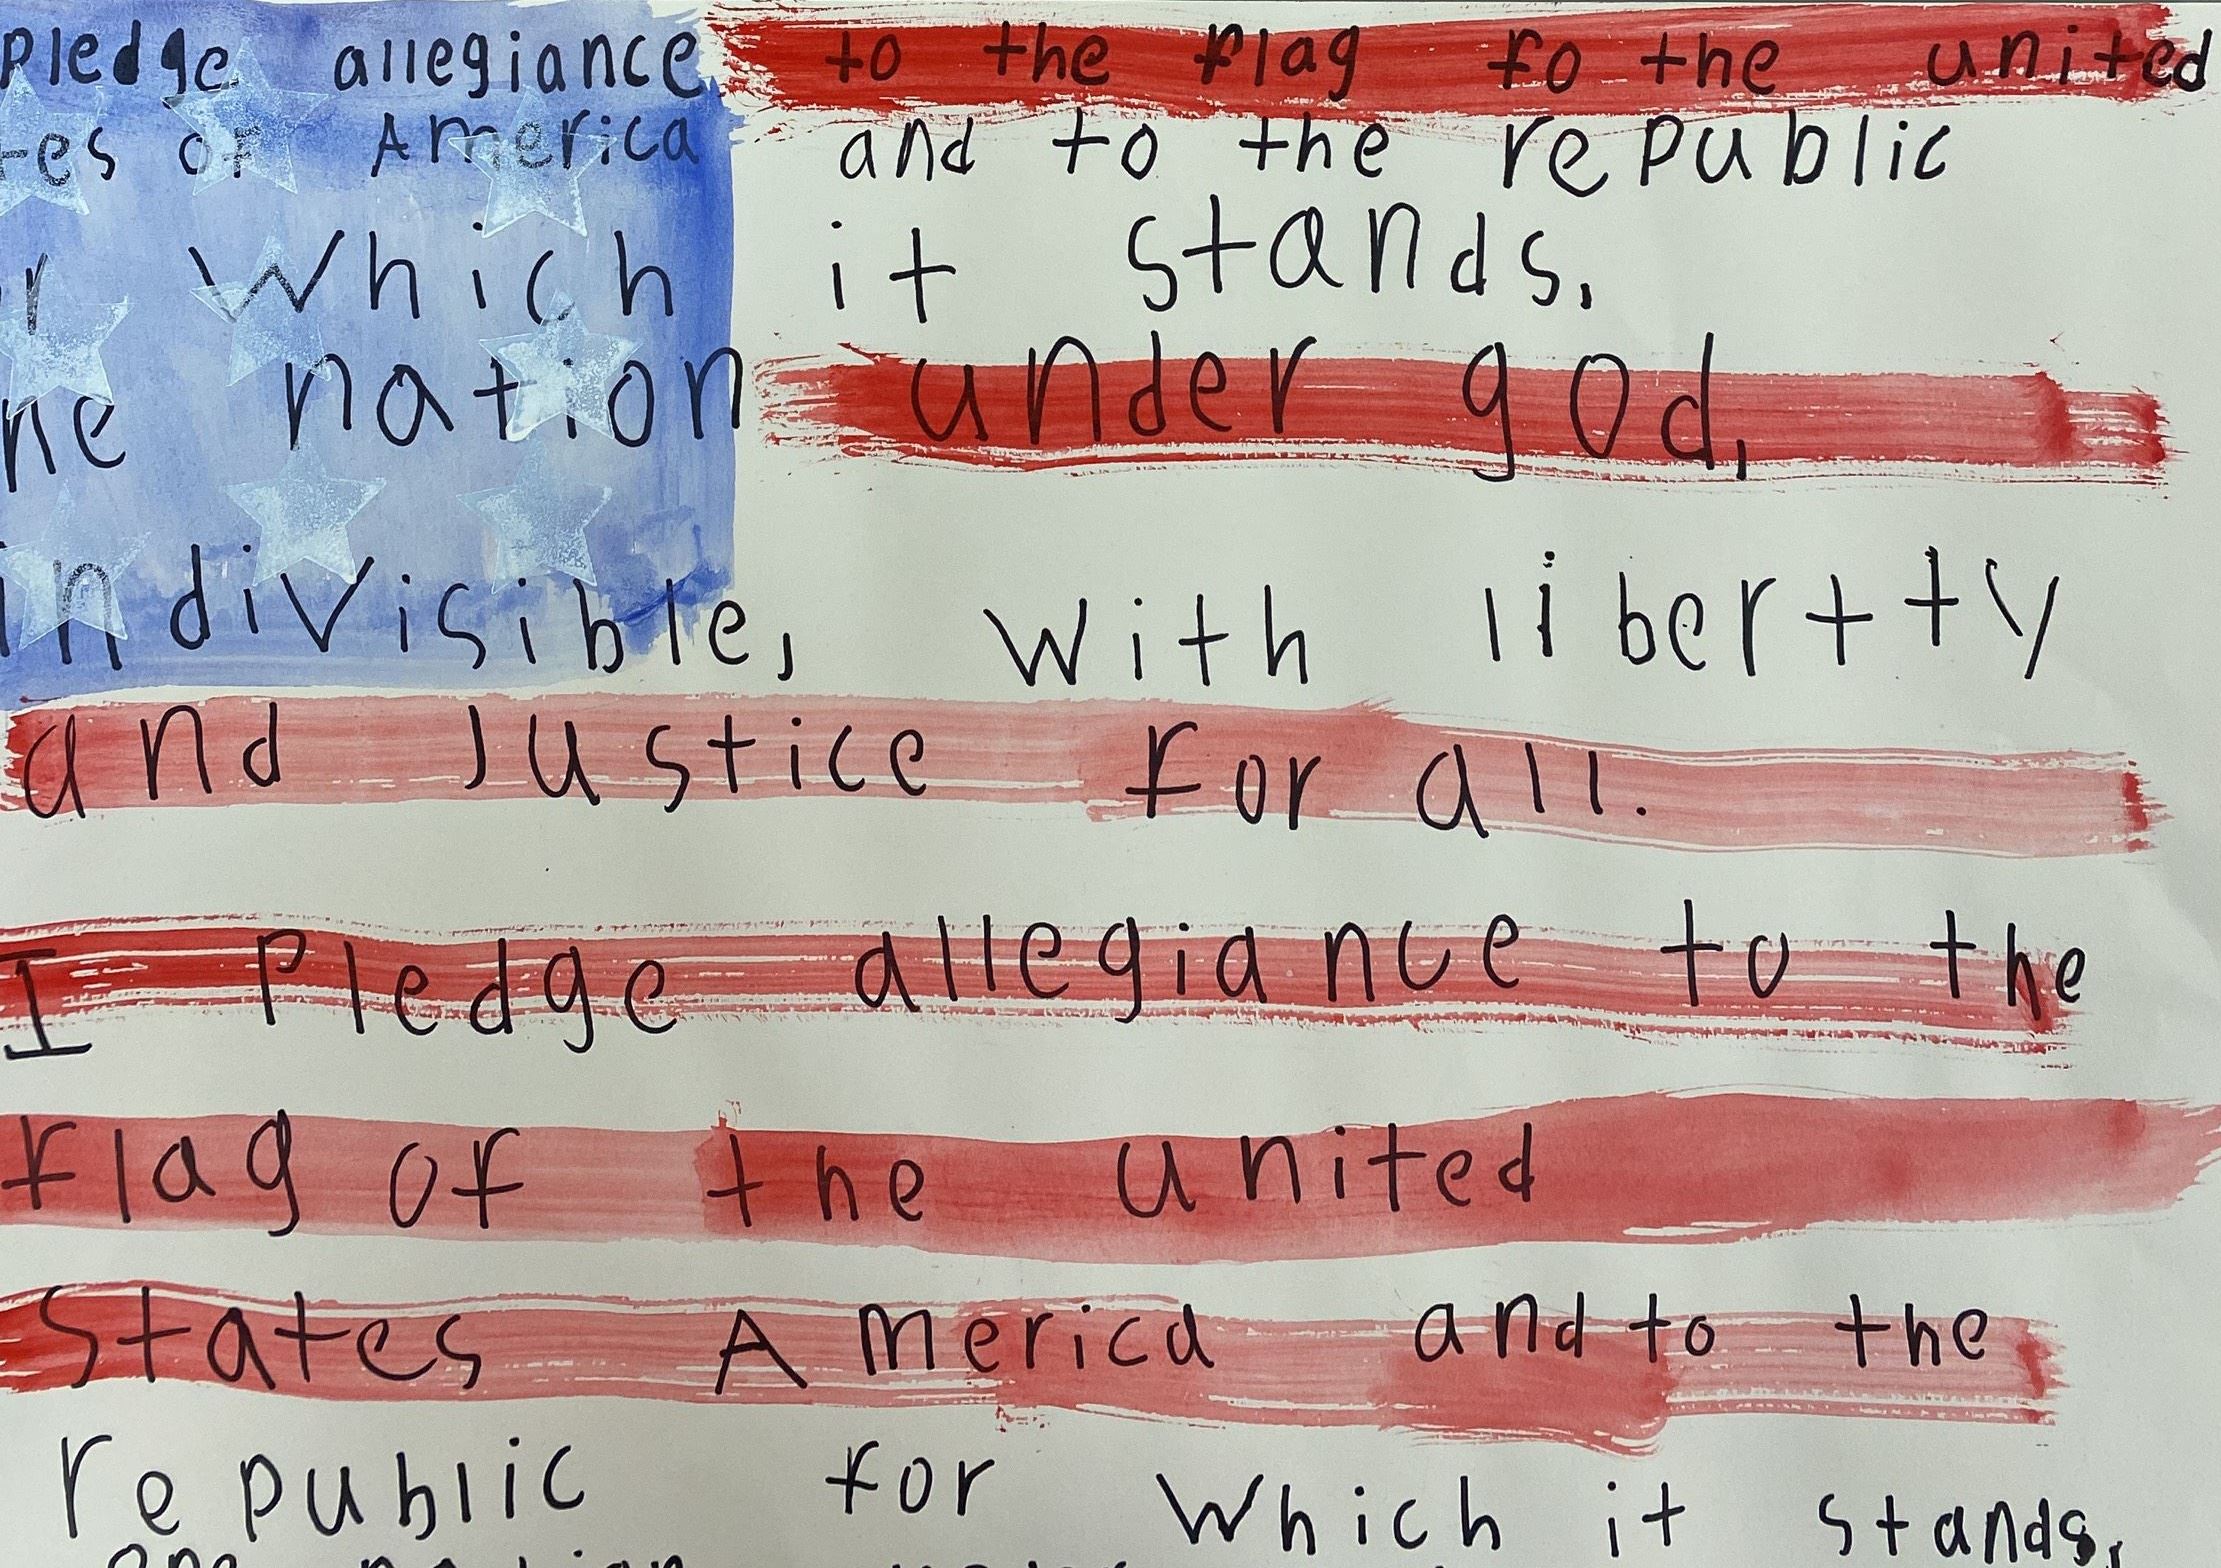 Pledge allegiance to the flag fo the united
tes of America and to the republic
r Which it stands,
ne nation under god,
indivisible, with libertty
and Justice for all.
I Pledge allegiance to the
flag of the united
states America and to the
republic for Which it stands,
one nation under